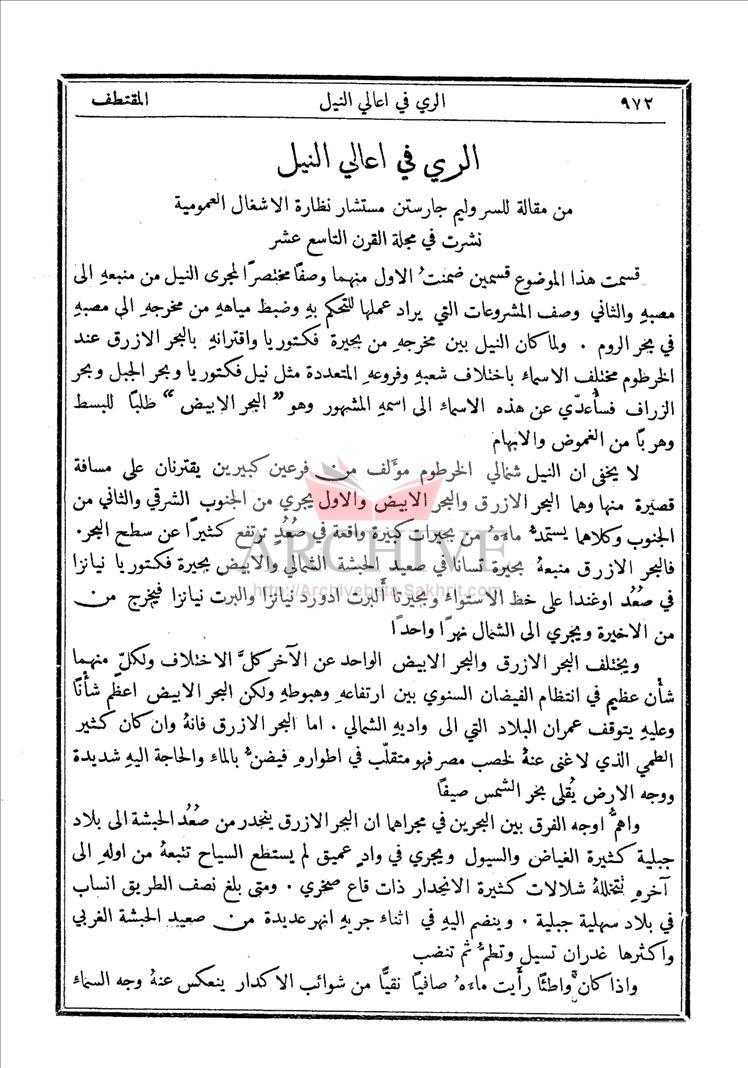 ٩٧٢ الري في اعالي النيل المقتطف
الري في اعالي النيل
من مقالة للسر وليم جارستن مستشار نظارة الاشغال العمومية
نشرت في مجلة القرن التاسع عشر
قسمت هذا الموضوع قسمين ضمنتُ الاول منهما وصفًا مختصرًا لمجرى النيل من منبعهِ الى
مصبهِ والثاني وصف المشروعات التي يراد عملها للتحكم بهِ وضبط مياهه من مخرجهِ الى مصبهِ
في بحر الروم . ولما كان النيل بين مخرجهِ من بحيرة فكتوريا واقترانهِ بالبحر الازرق عند
الخرطوم مختلف الاسماء باختلاف شعبهِ وفروعهِ المتعددة مثل نيل فكتوريا وبحر الجبل وبحر
الزراف فسأُعدّي عن هذه الاسماء الى اسمهِ المشهور وهو "البحر الابيض" طلبًا للبسط
وهربًا من الغموض والابهام
لا يخفى ان النيل شمالي الخرطوم مؤَلف من فرعين كبيرين يقترنان على مسافة
قصيرة منها وهما البحر الازرق والبحر الابيض والاول يجري من الجنوب الشرقي والثاني من
الجنوب وكلاهما يستمدُّ ماءَهُ من بحيرات كبيرة واقعة في صُعُدٍ ترتفع كثيرًا عن سطح البحر.
ARCHIVE
فالبحر الازرق منبعهُ بحيرة تسانا في صعيد الحبشة الشمالي والابيض بحيرة فكتوريا نيانزا
http://Archivebeta.Sakhrit.com
في صُعُد اوغندا على خط الاستواء وبحيرتا أَلبرت ادورد نيانزا والبرت نيانزا فيخرج من
من الاخيرة ويجري الى الشمال نهرًا واحدًا
ويختلف البحر الازرق والبحر الابيض الواحد عن الآخر كلَّ الاختلاف ولكلّ منهما
شأن عظيم في انتظام الفيضان السنوي بين ارتفاعهِ وهبوطهِ ولكن البحر الابيض اعظم شأنًا
وعليهِ يتوقف عمران البلاد التي الى واديهِ الشمالي . اما البحر الازرق فانهُ وان كان كثير
الطمي الذي لا غنى عنهُ لخصب مصر فهو متقلّب في اطوارهِ فيضنُّ بالماء والحاجة اليهِ شديدة
ووجه الارض يُقلى بحر الشمس صيفًا
واهمُّ اوجه الفرق بين البحرين في مجراهما ان البحر الازرق ينحدر من صُعُد الحبشة الى بلاد
جبلية كثيرة الغياض والسيول ويجري في وادٍ عميق لم يستطع السياح تتبعهُ من اولهِ الى
آخرهِ تتخللهُ شلالات كثيرة الانحدار ذات قاع صخري . ومتى بلغ نصف الطريق انساب
في بلاد سهلية جبلية . وينضم اليهِ في اثناء جريهِ انهر عديدة من صعيد الحبشة الغربي
واكثرها غدران تسيل وتطمُّ ثم تنضب
واذا كان واطئًا رأَيت ماءَهُ صافيًا نقيًّا من شوائب الاكدار ينعكس عنهُ وجه السماء